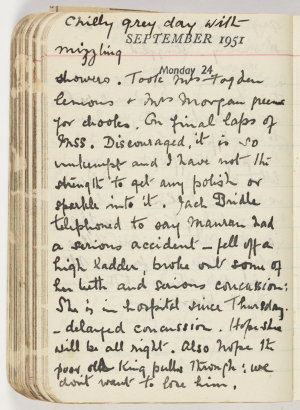 Chilly grey day with
mizzling
SEPTEMBER 1951
Monday 24
showers. Took Mrs Fogden
lemons & Mrs Morgan greens
for chooks. On final laps of
MSS. Discouraged, it is so
unkempt and I have not the
strength to get any polish or
sparkle into it. Jack Bridle
telephoned to say Manran had
a serious accident – fell off a
high ladder, broke out some of
her teeth and serious concussion:
She is in hospital since Thursday.
– delayed concussion. Hope she
will be all right. Also hope the
poor King pulls through: we
don't want to lose him.